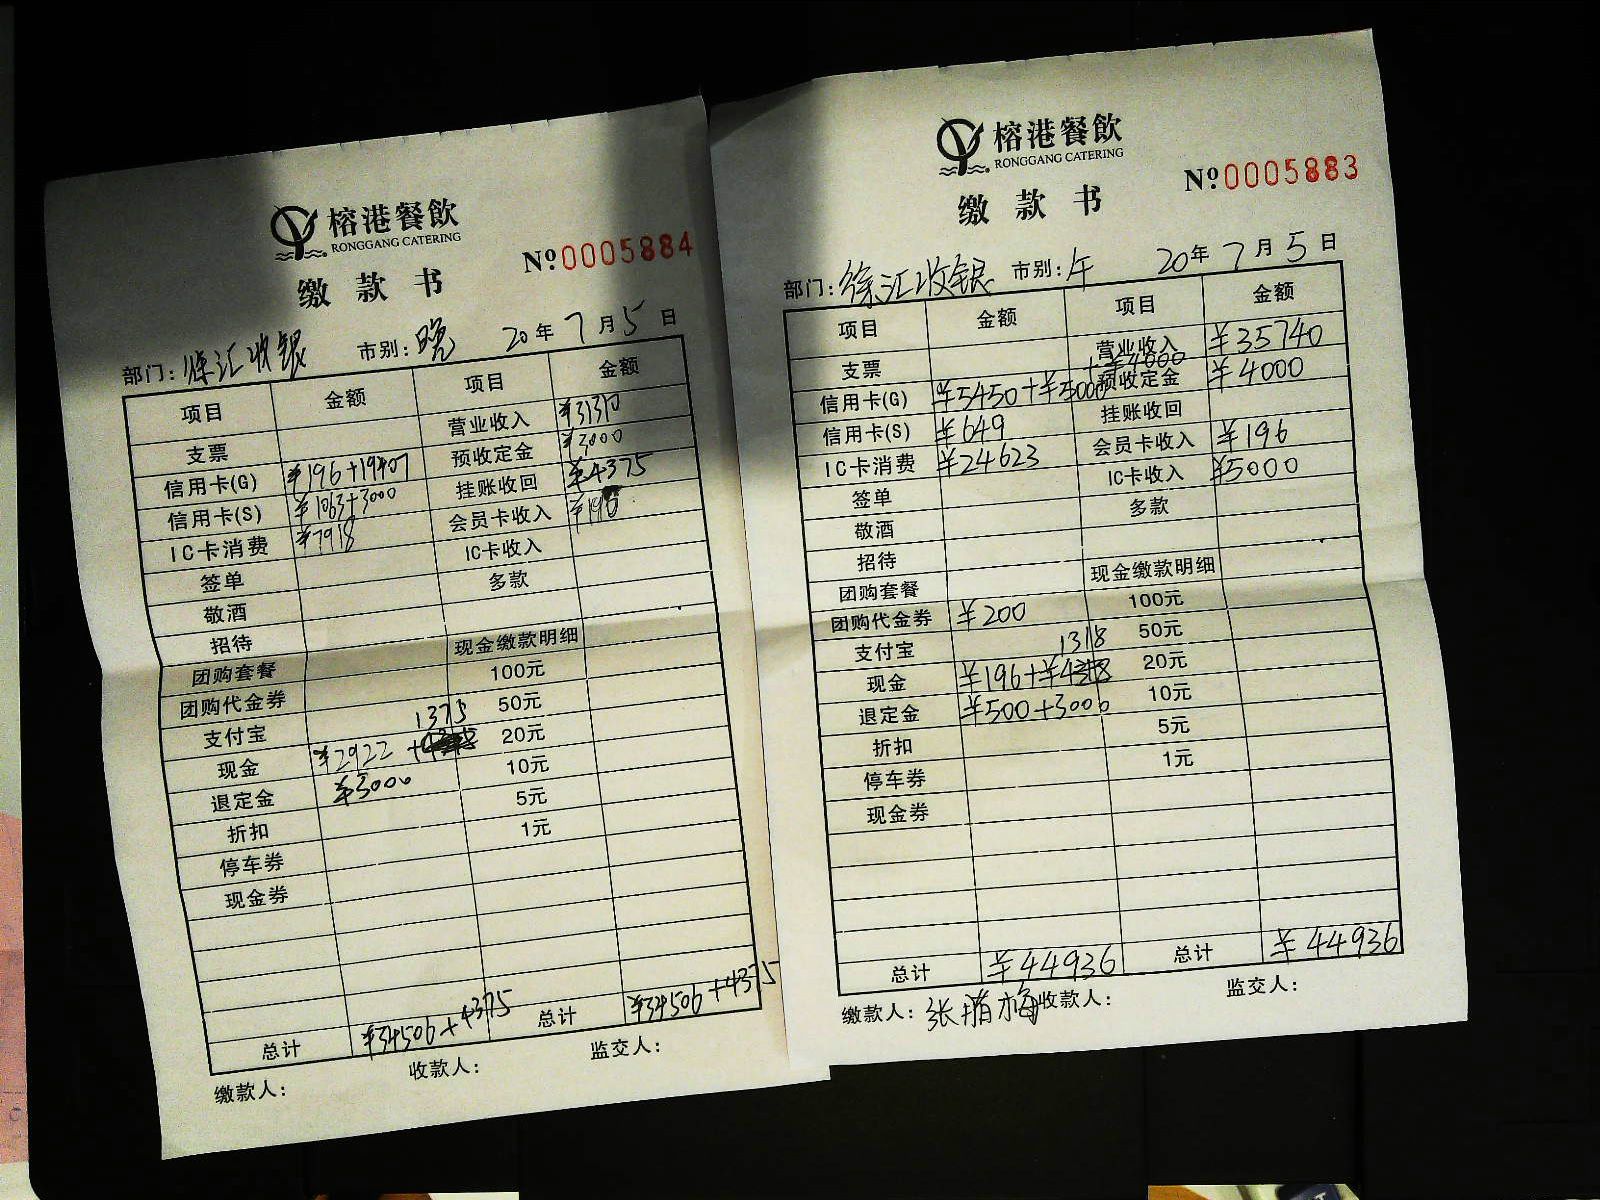 榕港餐飲
RONGGANG CATERING
缴款书
№0005884
部门: 徐汇收银 市别: 晚 20年7月5日
项目 金额 项目 金额
支票 营业收入 ¥31310
信用卡(G) ¥196+19407 预收定金 ¥3000
信用卡(S) ¥1063+3000 挂账收回 ¥4375
IC卡消费 ¥7918 会员卡收入 ¥196
签单 IC卡收入
敬酒 多款
招待
团购套餐 现金缴款明细
团购代金券 100元
支付宝 1375 50元
现金 ¥2922 + 20元
退定金 ¥3000 10元
折扣 5元
停车券 1元
现金券
总计 ¥34506+4375 总计 ¥34506+4375
缴款人: 收款人: 监交人:
榕港餐飲
RONGGANG CATERING
缴款书
№0005883
部门: 徐汇收银 市别: 午 20年7月5日
项目 金额 项目 金额
支票 营业收入 ¥35740
+¥4000
信用卡(G) ¥5450+¥5000 预收定金 ¥4000
信用卡(S) ¥649 挂账收回
IC卡消费 ¥24623 会员卡收入 ¥196
签单 IC卡收入 ¥5000
敬酒 多款
招待
团购套餐 现金缴款明细
团购代金券 ¥200 100元
支付宝 1318 50元
现金 ¥196+¥ 20元
退定金 ¥500+3000 10元
折扣 5元
停车券 1元
现金券
总计 ¥44936 总计 ¥44936
缴款人: 张 梅 收款人: 监交人: